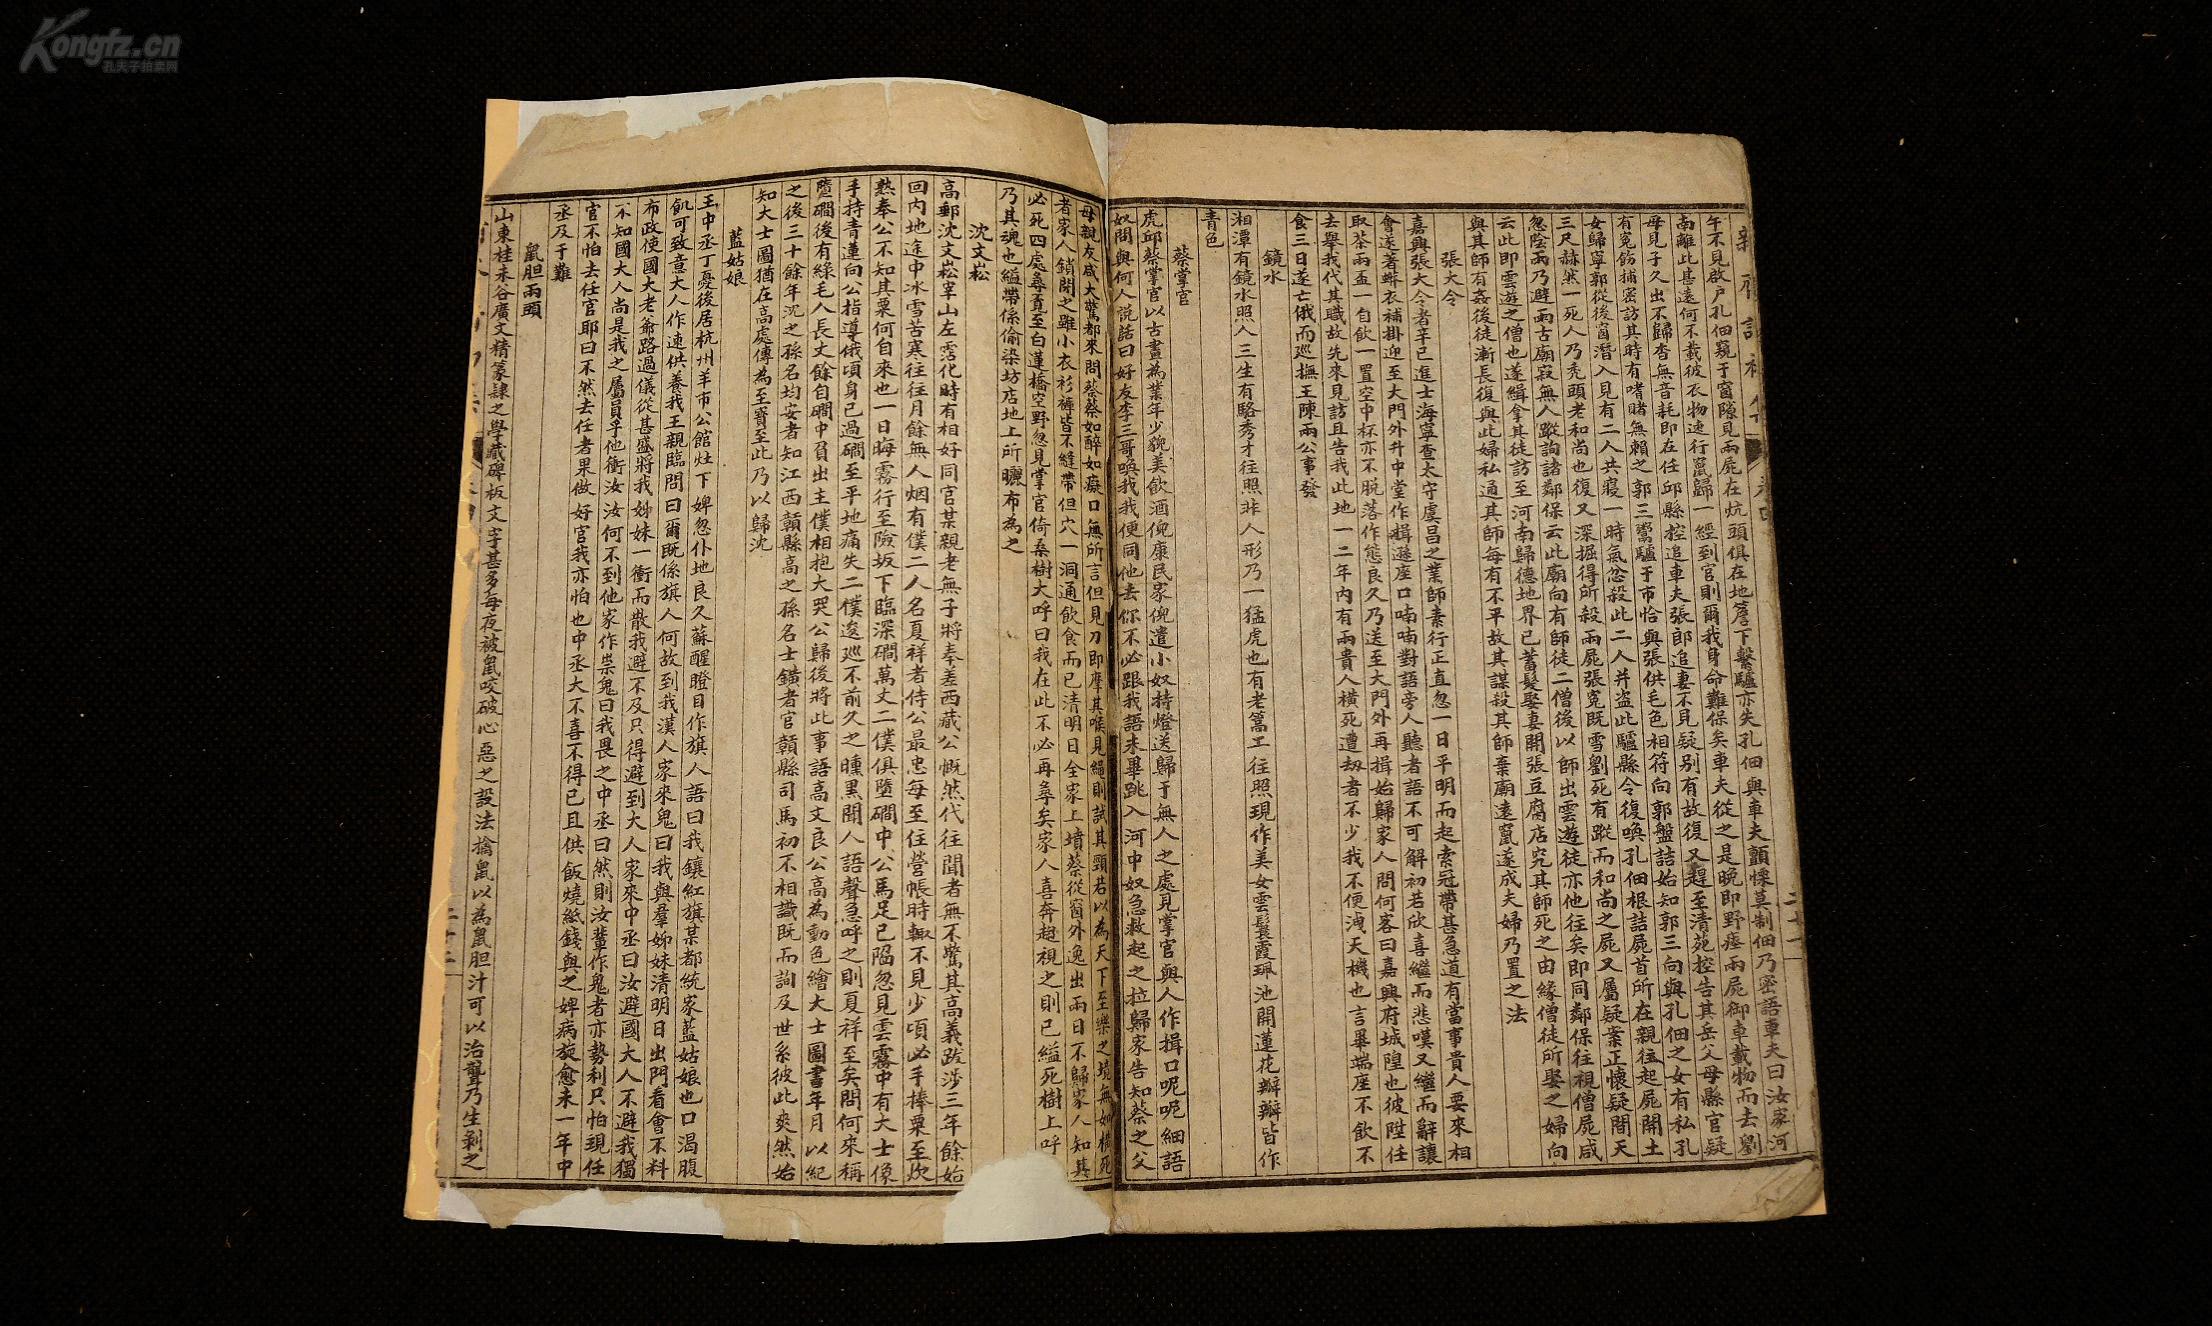 Kongfz.cn
孔夫子拍卖网
午不見啟户孔佃窺于窗隙見兩屍在炕頭俱在地簷下繫驢亦失孔佃與車夫顫慄莫制佃乃密語車夫曰汝家河
南離此甚遠何不載彼衣物速行竄歸一經到官則爾我身命難保矣車夫從之是晚即野瘞兩屍御車載物而去劉
母見子久出不歸杳無音耗即在任邱縣控追車夫張郎追妻不見疑别有故復又趕至清苑控告其岳父母縣官疑
有冤飭捕密訪其時有嗜賭無賴之郭三鬻驢于市恰與張供毛色相符向郭盤詰始知郭三向與孔佃之女有私孔
女歸寧郭從後窗潛入見有二人共寢一時氣忿殺此二人并盗此驢縣令復喚孔佃根詰屍首所在親往起屍開土
三尺赫然一死人乃秃頭老和尚也復又深掘得所殺兩屍張冤既雪劉死有蹤而和尚之屍又屬疑案正懷疑間天
忽陰雨乃避雨古廟寂無人蹤詢諸鄰保云此廟向有師徒二僧後以師出雲遊徒亦他往矣即同鄰保往視僧屍咸
云此即雲遊之僧也遂緝拿其徒訪至河南歸德地界已蓄髮娶妻開張豆腐店究其師死之由緣僧徒所娶之婦向
與其師有姦後徒漸長復與此婦私通其師每有不平故其謀殺其師棄廟遠竄遂成夫婦乃置之法
張大令
嘉興張大令者辛已進士海寧查太守虞昌之業師素行正直忽一日平明而起索冠帶甚急道有當事貴人要來相
會遂著蟒衣補掛迎至大門外升中堂作揖遜座口喃喃對語旁人聽者語不可解初若欣喜繼而悲嘆又繼而辭讓
取茶兩盃一自飲一置空中杯亦不脱落作態良久乃送至大門外再揖始歸家人問何客曰嘉興府城隍也彼陞任
去舉我代其職故先來見訪且告我此地一二年内有兩貴人橫死遭劫者不少我不便洩天機也言畢端座不飲不
食三日遂亡俄而巡撫王陳兩公事發
鏡水
湘潭有鏡水照人三生有駱秀才往照非人形乃一猛虎也有老篙工往照現作美女雲鬟霞珮池開蓮花瓣瓣皆作
青色
蔡掌官
虎邱蔡掌官以古畫為業年少貌美飲酒倪康民家倪遣小奴持燈送歸于無人之處見掌官與人作揖口呢呢細語
奴問與何人説話曰好友李三哥喚我我便同他去你不必跟我語未畢跳入河中奴急救起之拉歸家告知蔡之父
母親友咸大驚都來問蔡蔡如醉如癡口無所言但見刀即摩其喉見繩則試其頸若以為天下至樂之境無如橫死
者家人鎖閉之雖小衣衫褲皆不縫帶但穴一洞通飲食而已清明日全家上墳蔡從窗外逸出兩日不歸家人知其
必死四處尋覓至白蓮橋空野忽見掌官倚桑樹大呼曰我在此不必再尋矣家人喜奔趨視之則已縊死樹上呼
乃其魂也縊帶係偷染坊店地上所曬布為之
沈文崧
高郵沈文崧宰山左霑化時有相好同官某親老無子將奉差西藏公慨然代往聞者無不驚其高義跋涉三年餘始
回内地途中冰雪苦寒往往月餘無人烟有僕二人名夏祥者侍公最忠每至住營帳時輒不見少頃必手捧粟至炊
熟奉公不知其粟何自來也一日晦霧行至險坂下臨深磵萬丈二僕俱墮磵中公馬足已陷忽見雲霧中有大士像
手持青蓮向公指導俄頃身已過磵至平地痛失二僕逡巡不前久之曛黑聞人語聲急呼之則夏祥至矣問何來稱
墮磵後有緑毛人長丈餘自磵中負出主僕相抱大哭公歸後將此事語高文良公高為動色繪大士圖書年月以紀
之後三十餘年沉之孫名均安者知江西贛縣高之孫名士鐄者官贛縣司馬初不相識既而詢及世系彼此爽然始
知大士圖猶在高處傳為至寶至此乃以歸沈
藍姑娘
王中丞丁憂後居杭州羊市公館灶下婢忽仆地良久蘇醒瞪目作旗人語曰我鑲紅旗某都統家藍姑娘也口渴腹
飢可致意大人作速供養我王親臨問曰爾既係旗人何故到我漢人家來鬼曰我與羣姊妹清明日出門看會不料
布政使國大老爺路過儀從甚盛將我姊妹一衝而散我避不及只得避到大人家來中丞曰汝避國大人不避我獨
不知國大人尚是我之屬員乎他衝汝汝何不到他家作祟鬼曰我畏之中丞曰然則汝輩作鬼者亦勢利只怕現任
官不怕去任官耶曰不然去任者果做好官我亦怕也中丞大不喜不得已且供飯燒紙錢與之婢病旋愈未一年中
丞及于難
鼠胆兩頭
山東桂未谷廣文精篆隸之學藏碑板文字甚多每夜被鼠咬破心惡之設法擒鼠以為鼠胆汁可以治聾乃生剥之